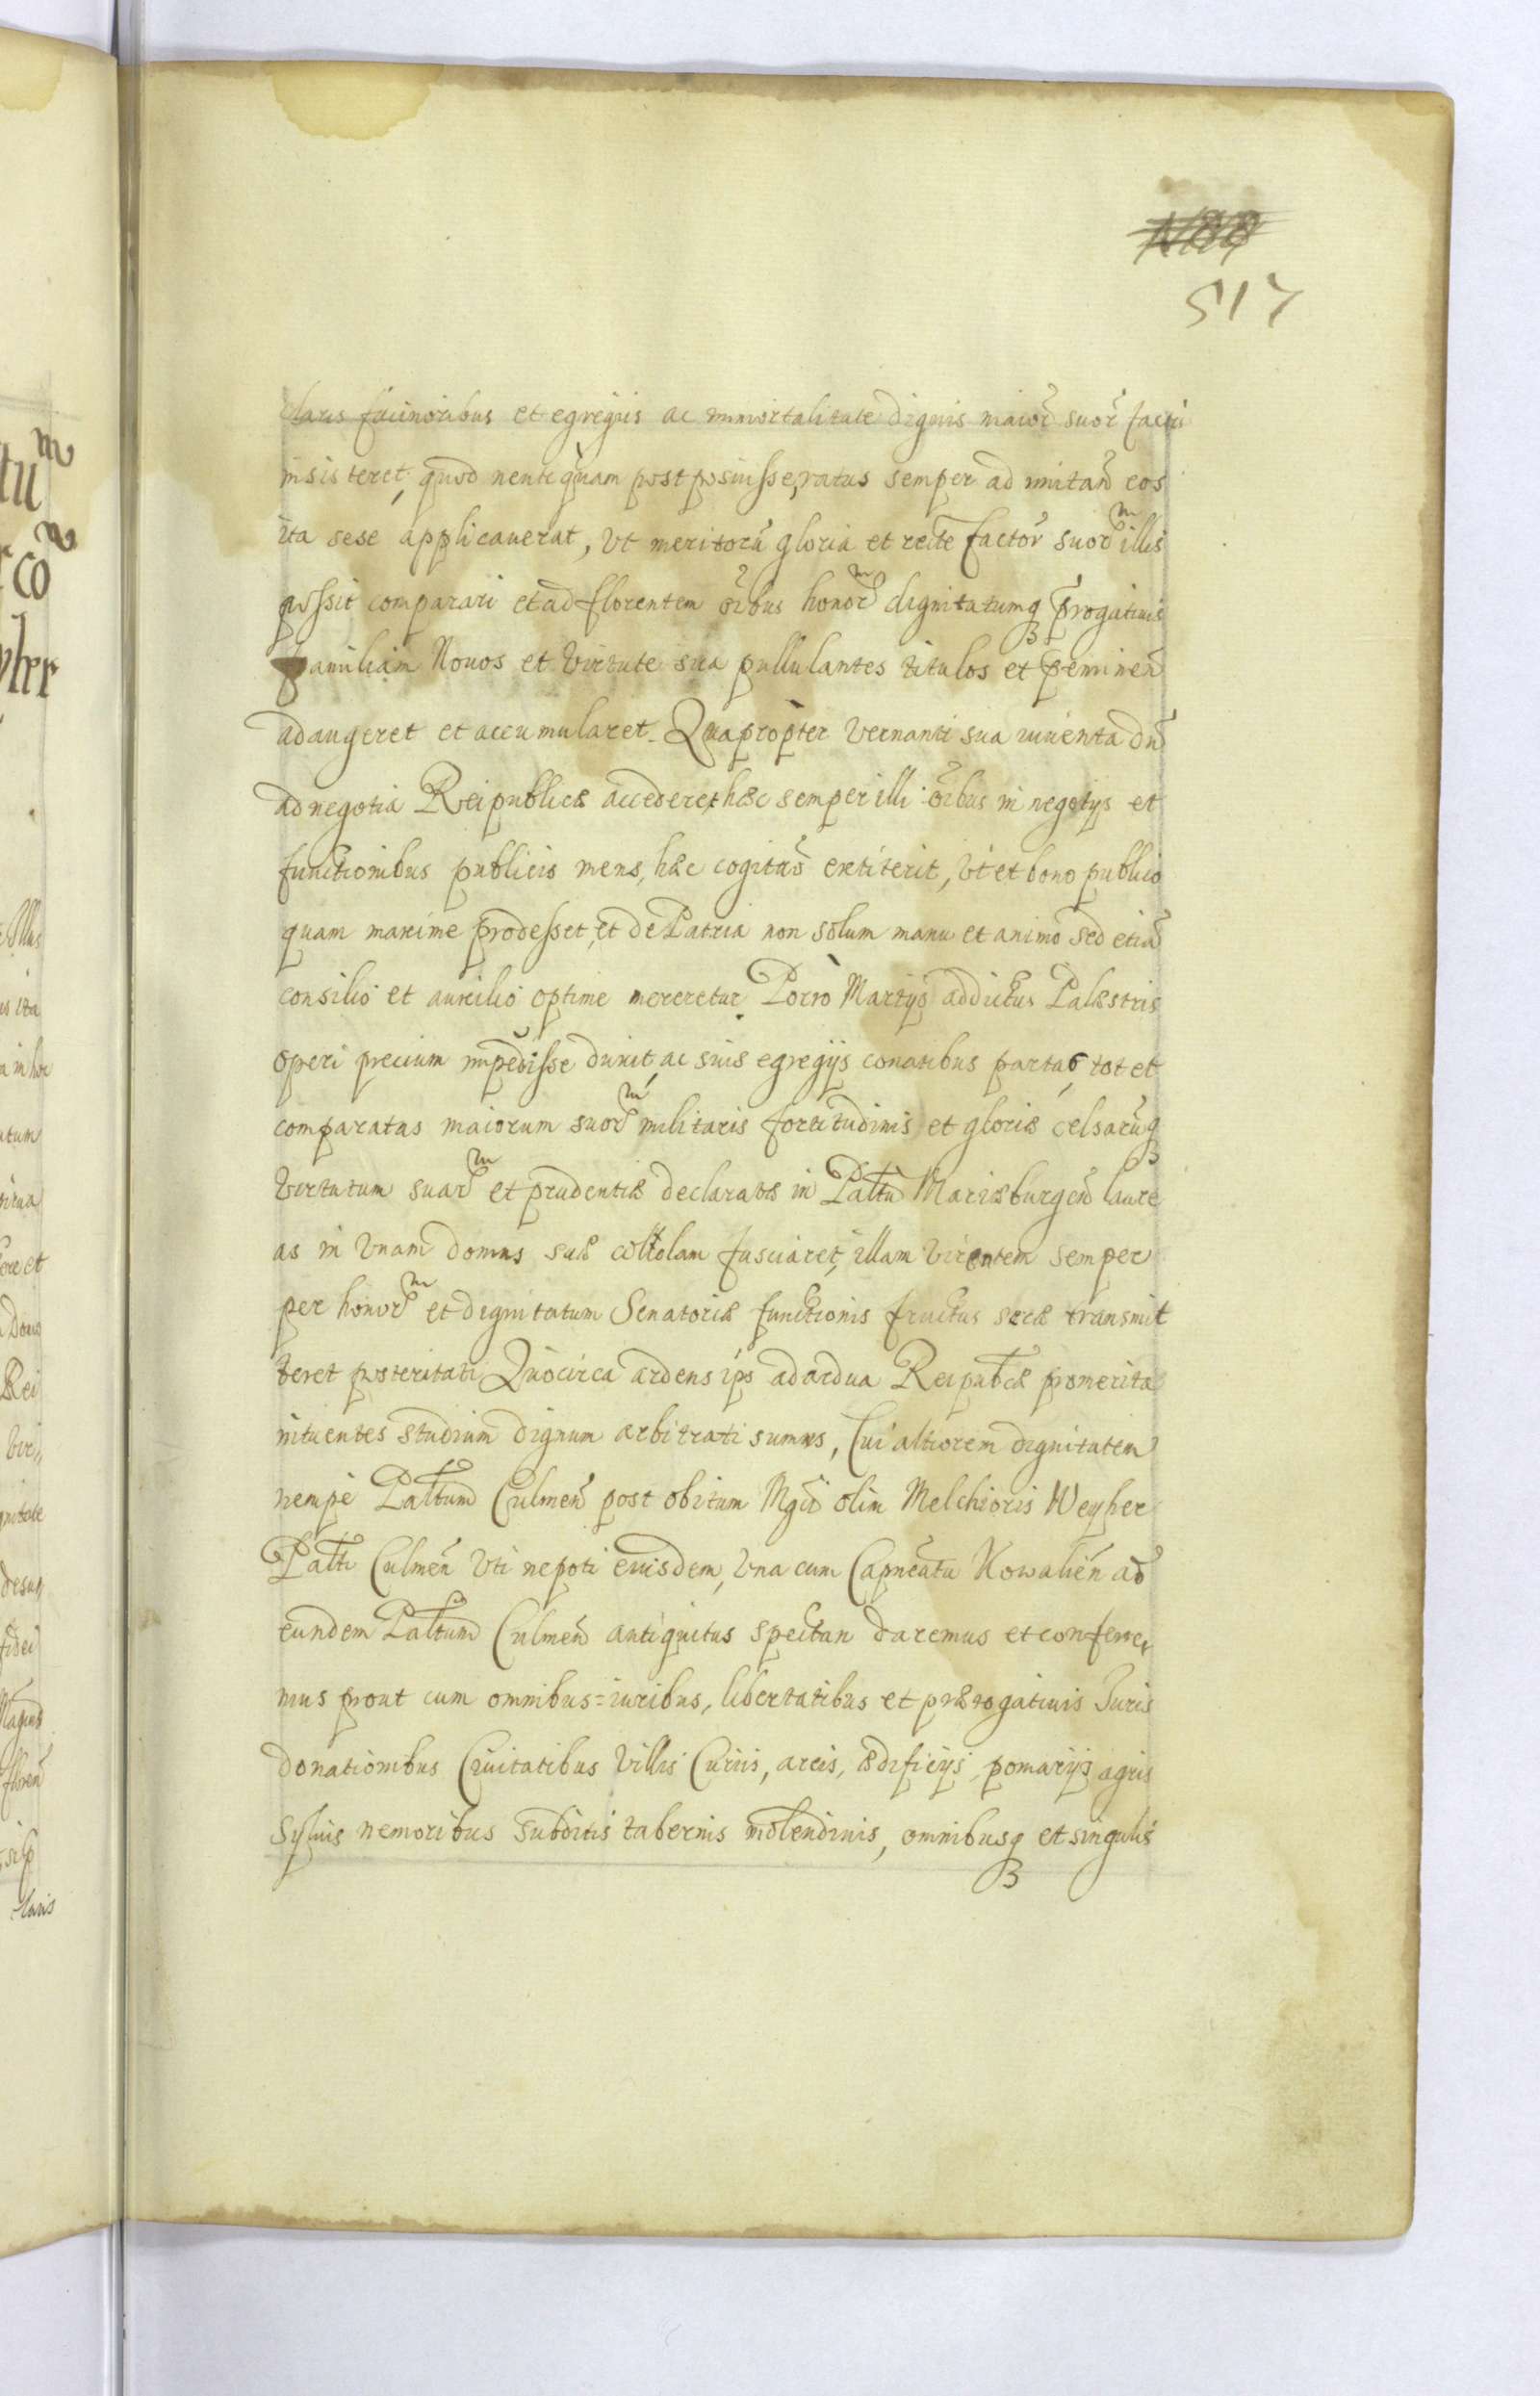 517
claris facinoribus et egregiis ac immortalitate dignis maior̃ suor̃ factis
insisteret, quod neutiquam postposuisse, ratus semper ad imitan̄ eos
ita sese applicauerat, vt meritorū gloria et recte factor̃ suor̃m illis
possit comparari et ad florentem oı̄bus honor̃m dignitatumq₃ p̄rogatiuis
familiam Nouos et virtute sua pullulantes titulos et p̄eminen̄
adaugeret et accumularet. Quapropter vernanti sua iuuenta dū
ad negotia Reipublicæ accederet, hæc semper illi oı̄bus in negotijs et
functionibus publicis mens, hæc cogitaõ extiterit, vt et bono publico
quam maxime prodesset, et de Patria non solum manu et animo sed etiā
consilio et auxilio optime mereretur. Porrò Martijs addictus Palæstris
operi precium impēdisse duxit, ac suis egregijs conatibus partas, tot et
comparatas maiorum suor̃m militaris fortitudinis et gloriæ celsarūq₃
virtutum suar̃m et prudentiæ declaratæ in Pal̄tū Mariæburgen̄ laure
as in vnam domus suæ corollam fasciaret, illam virentem semper
per honor̃m et dignitatum Senatoriæ functionis fructus seræ transmit
teret posteritati Quòcirca ardens ips ad ardua Reipub̄cæ promerita
intuentes studium dignum arbitrati sumus, Cui altiorem dignitatem
nempe Pal̄tum Culmen̄ post obitum Mgci olim Melchioris Weyher
Pal̄ti Culmen̄ vti nepoti eiusdem, vna cum Capnēatu Kowalien̄ ad
eundem Pal̄tum Culmen̄ antiquitus spectan̄ daremus et conferre,
mus prout cum omnibus=iuribus, libertatibus et prærogatiuis Iuris
donationibus Ciuitatibus villis Curiis, areis, ædificijs, pomarijs agris
Syluis nemoribus subditis tabernis molendinis, omnibusq₃ et singulis